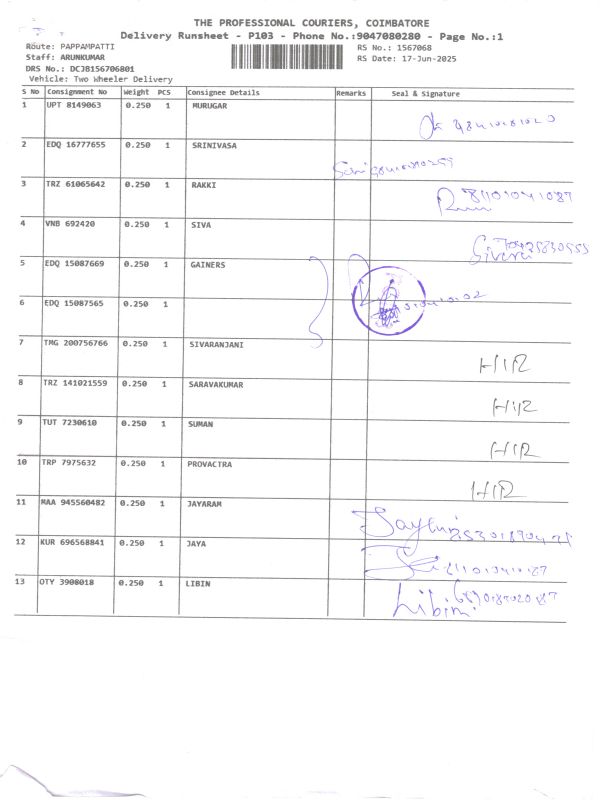 THE PROFESSIONAL COURIERS, COIMBATORE
Delivery Runsheet - P103 - Phone No.:9047080280 - Page No.:1
Route: PAPPAMPATTI RS No.: 1567068
Staff: ARUNKUMAR RS Date: 17-Jun-2025
DRS No.: DCJB156706801
Vehicle: Two Wheeler Delivery
S No Consignment No Weight PCS Consignee Details Remarks Seal & Signature
1 UPT 8149063 0.250 1 MURUGAR
2 EDQ 16777655 0.250 1 SRINIVASA
3 TRZ 61065642 0.250 1 RAKKI
4 VNB 692420 0.250 1 SIVA
5 EDQ 15087669 0.250 1 GAINERS
6 EDQ 15087565 0.250 1
7 TMG 200756766 0.250 1 SIVARANJANI HIR
8 TRZ 141021559 0.250 1 SARAVAKUMAR HIR
9 TUT 7230610 0.250 1 SUMAN HIR
10 TRP 7975632 0.250 1 PROVACTRA HIR
11 MAA 945560482 0.250 1 JAYARAM
12 KUR 696568841 0.250 1 JAYA
13 OTY 3908018 0.250 1 LIBIN Libin